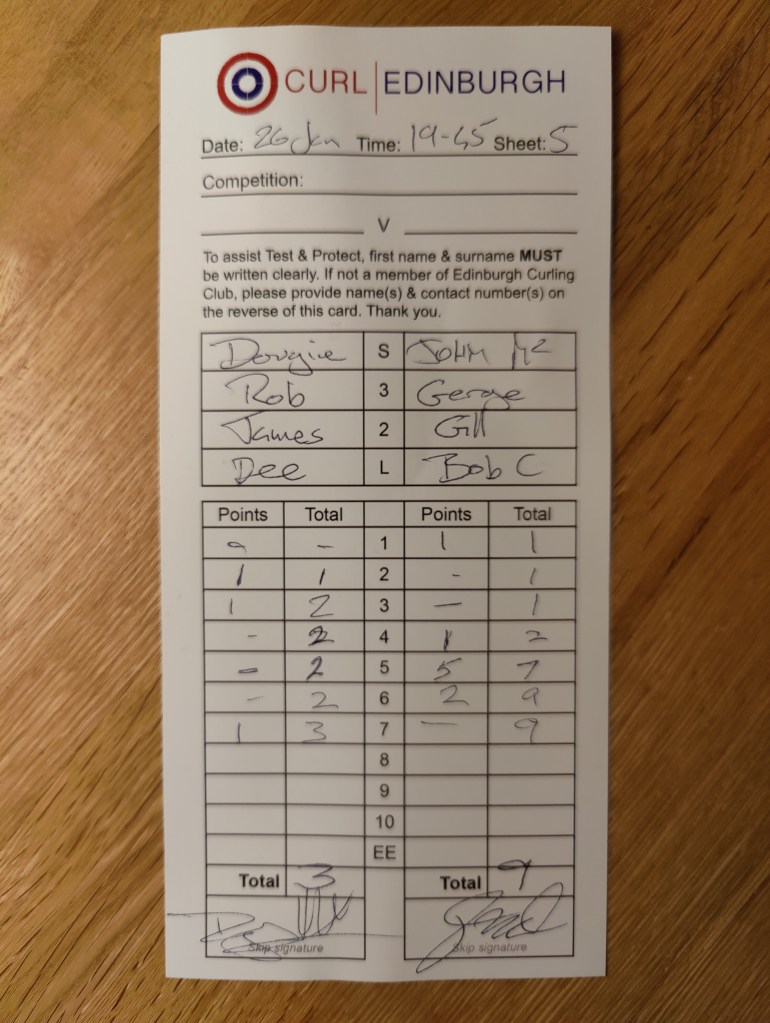 CURL | EDINBURGH
Date: 26 Jan Time: 19-45 Sheet: 5
Competition:
V
To assist Test & Protect, first name & surname MUST
be written clearly. If not a member of Edinburgh Curling
Club, please provide name(s) & contact number(s) on
the reverse of this card. Thank you.
Dougie S JOHN Mc
Rob 3 Gerge
James 2 Gill
Dee L Bob C
Points Total Points Total
- 1 1 1
1 1 2 - 1
1 2 3 - 1
- 2 4 1 2
- 2 5 5 7
- 2 6 2 9
1 3 7 - 9
8
9
10
EE
Total 3 Total 9
Skip signature Skip signature